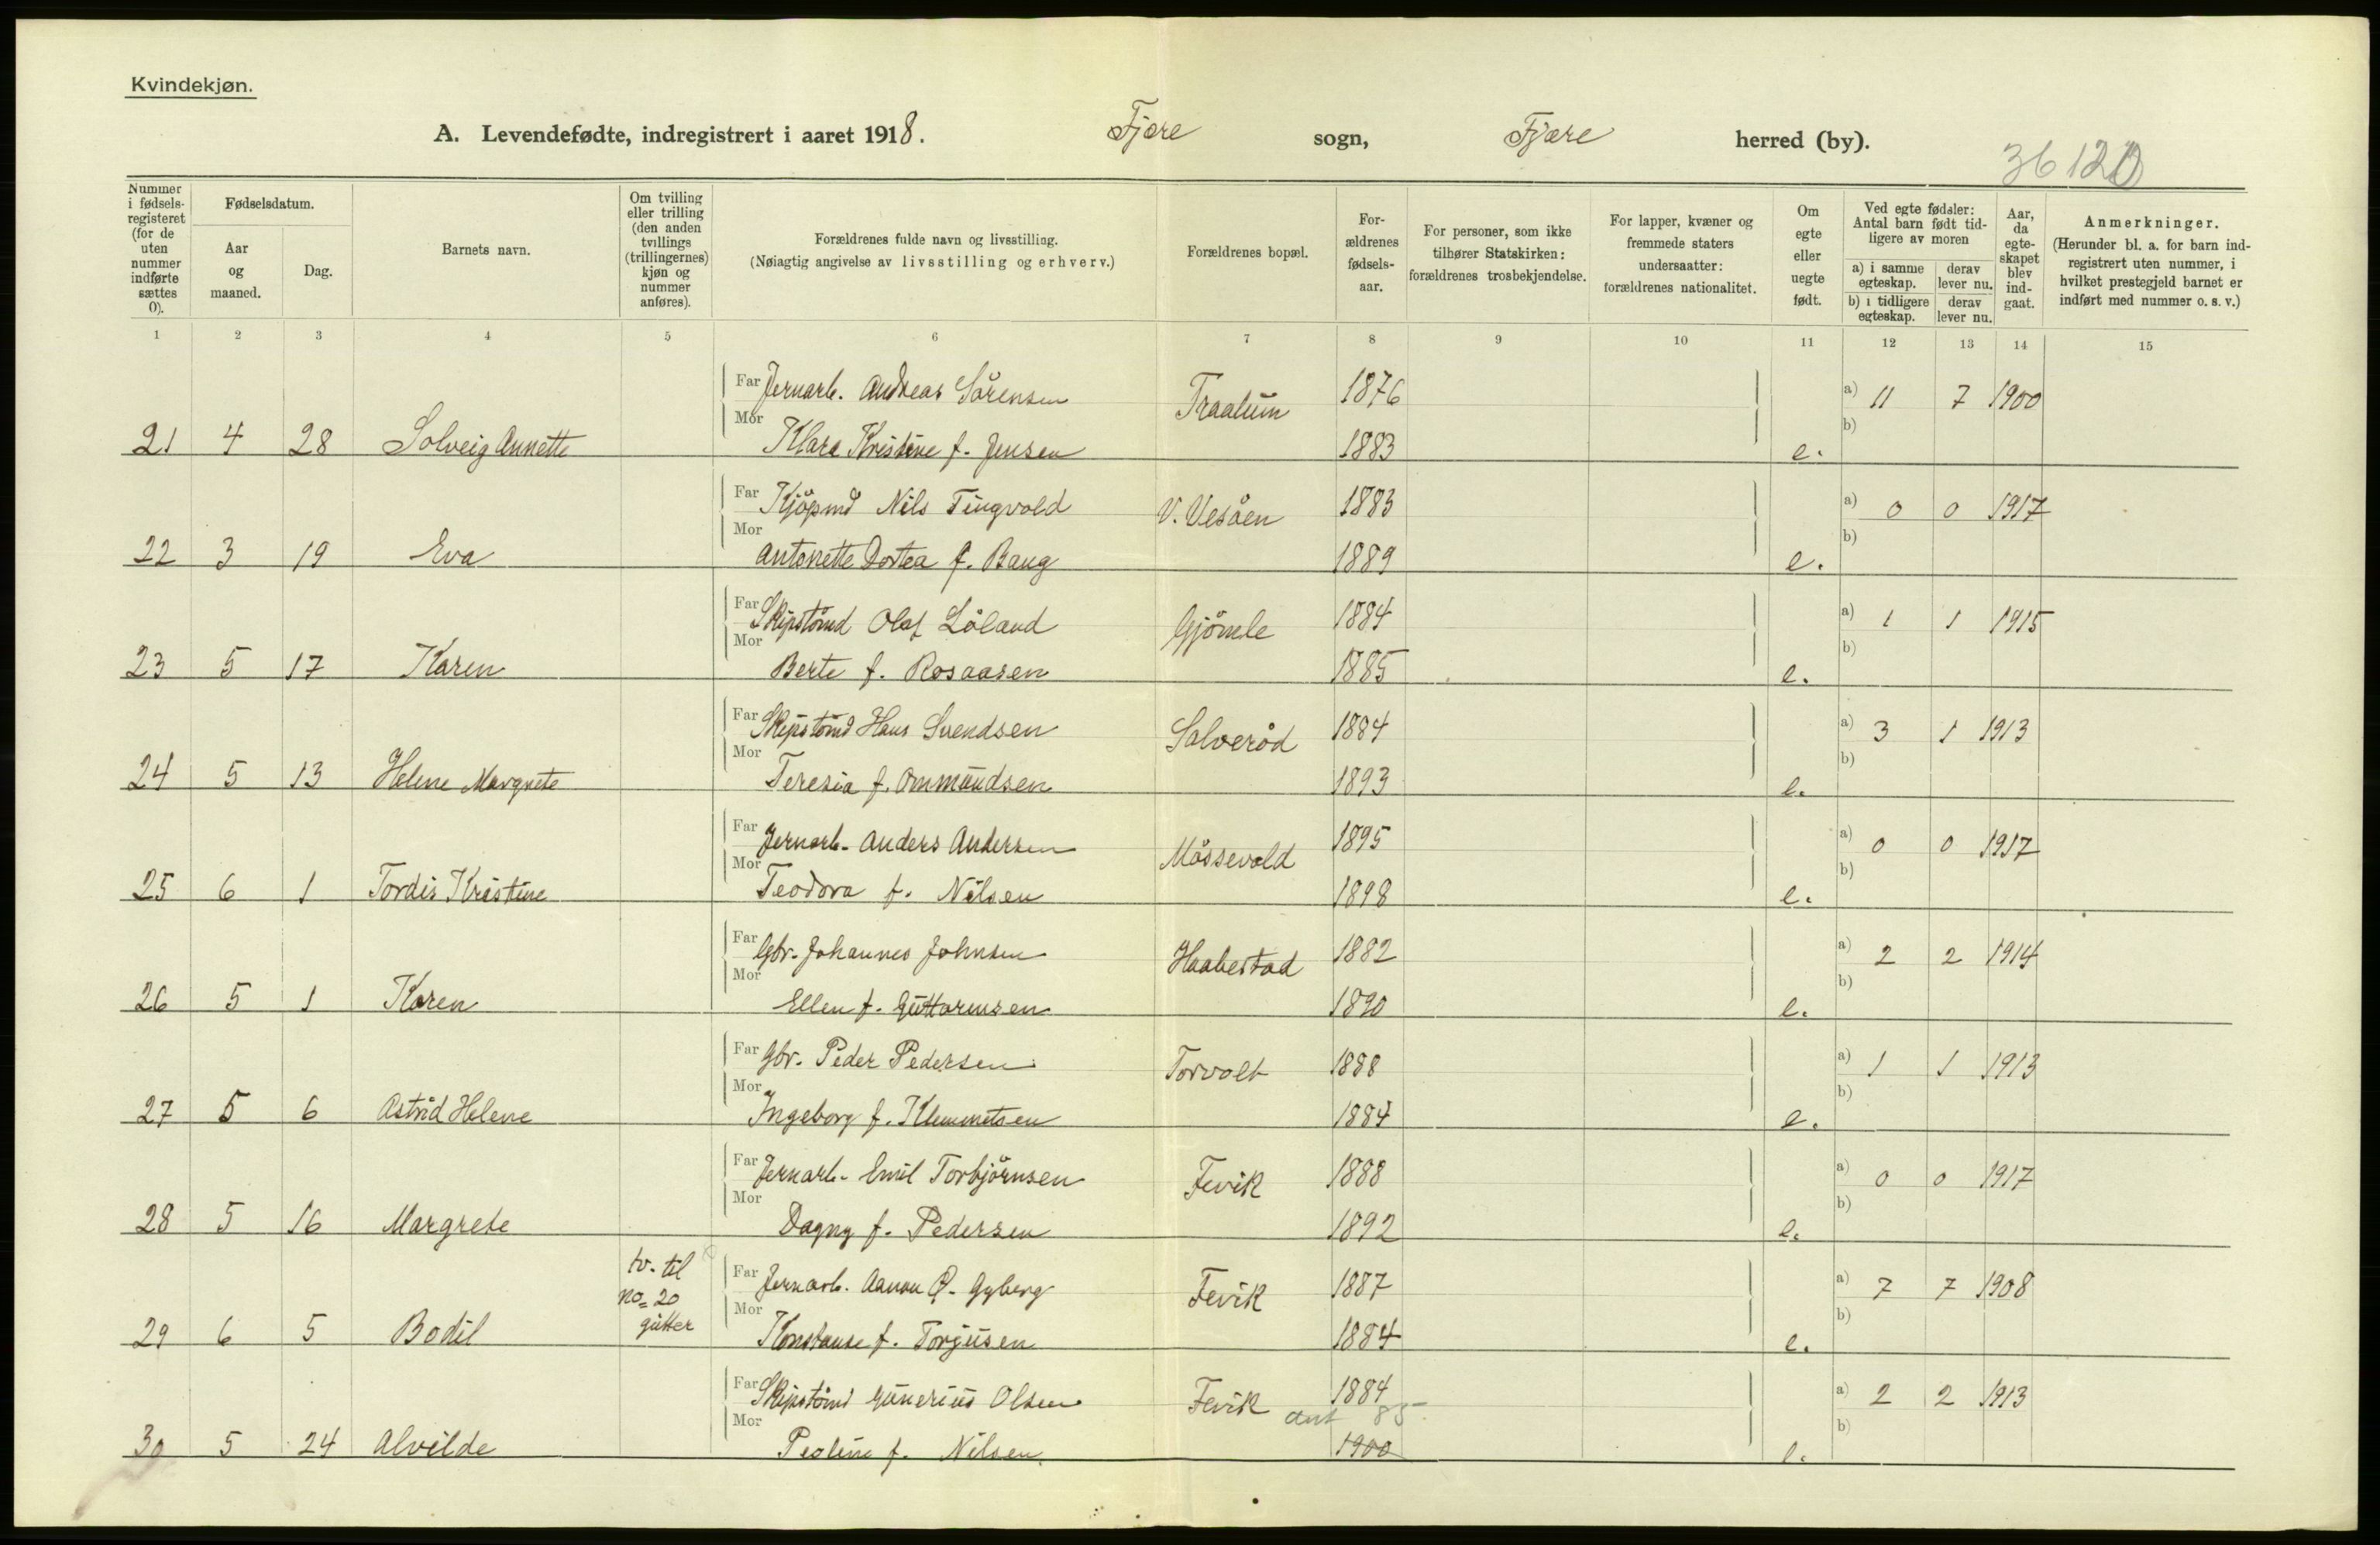 Kvindekjøn.
A. Levendefødte, indregistrert i aaret 1918. Fjære sogn, Fjære herred (by).
36 120
Nummer i fødselsregisteret (for de uten nummer indførte sættes 0).
Fødselsdatum.
Aar og maaned.
Dag.
Barnets navn.
Om tvilling eller trilling (den anden tvillings (trillingernes) kjøn og nummer anføres).
Forældrenes fulde navn og livsstilling.
(Nøiagtig angivelse av livsstilling og erhverv.)
Forældrenes bopæl.
Forældrenes fødselsaar.
For personer, som ikke tilhører Statskirken: forældrenes trosbekjendelse.
For lapper, kvæner og fremmede staters undersaatter: forældrenes nationalitet.
Om egte eller uegte født.
Ved egte fødsler: Antal barn født tidligere av moren
a) i samme egteskap. derav lever nu.
b) i tidligere egteskap. derav lever nu.
Aar, da egteskapet blev indgaat.
Anmerkninger.
(Herunder bl. a. for barn indregistrert uten nummer, i hvilket prestegjeld barnet er indført med nummer o. s. v.)
1 2 3 4 5 6 7 8 9 10 11 12 13 14 15
Far Jernarb. Andreas Sörensen Traalum 1876 a) 11 7 1900
21 4 28 Solveig Annette Mor Klara Kristine f. Jensen 1883 e. b)
Far Kjöpmd Nils Tingvold V. Vesöen 1883 a) 0 0 1917
22 3 19 Eva Mor Antonette Dortea f. Baug 1889 e. b)
Far Skipstömd Olaf Löland Gjömle 1884 a) 1 1 1915
23 5 17 Karen Mor Berte f. Rosaasen 1885 e. b)
Far Skipstömd Hans Svendsen Salveröd 1884 a) 3 1 1913
24 5 13 Helene Margrete Mor Teresia f. Ommundsen 1893 e. b)
Far Jernarb. Anders Andersen Mössevold 1895 a) 0 0 1917
25 6 1 Tordis Kristine Mor Teodora f. Nilsen 1898 e. b)
Far Gbr. Johannes Johnsen Haabestad 1882 a) 2 2 1914
26 5 1 Karen Mor Ellen f. Guttormsen 1890 e. b)
Far Gbr. Peder Pedersen Torvolt 1888 a) 1 1 1913
27 5 6 Astrid Helene Mor Ingeborg f. Klemmetsen 1884 e. b)
Far Jernarb. Emil Torbjörnsen Fevik 1888 a) 0 0 1917
28 5 16 Margrete Mor Dagny f. Pedersen 1892 e. b)
tv. til no= 20 gutter
Far Jernarb. Aanon O. Gyberg Fevik 1887 a) 7 7 1908
29 6 5 Bodil Mor Konstanse f. Torjusen 1884 e. b)
Far Skipstömd Gunerius Olsen Fevik 1884 a) 2 2 1913
ant 85.
30 5 24 Alvilde Mor Peoline f. Nilsen. 1900 e. b)